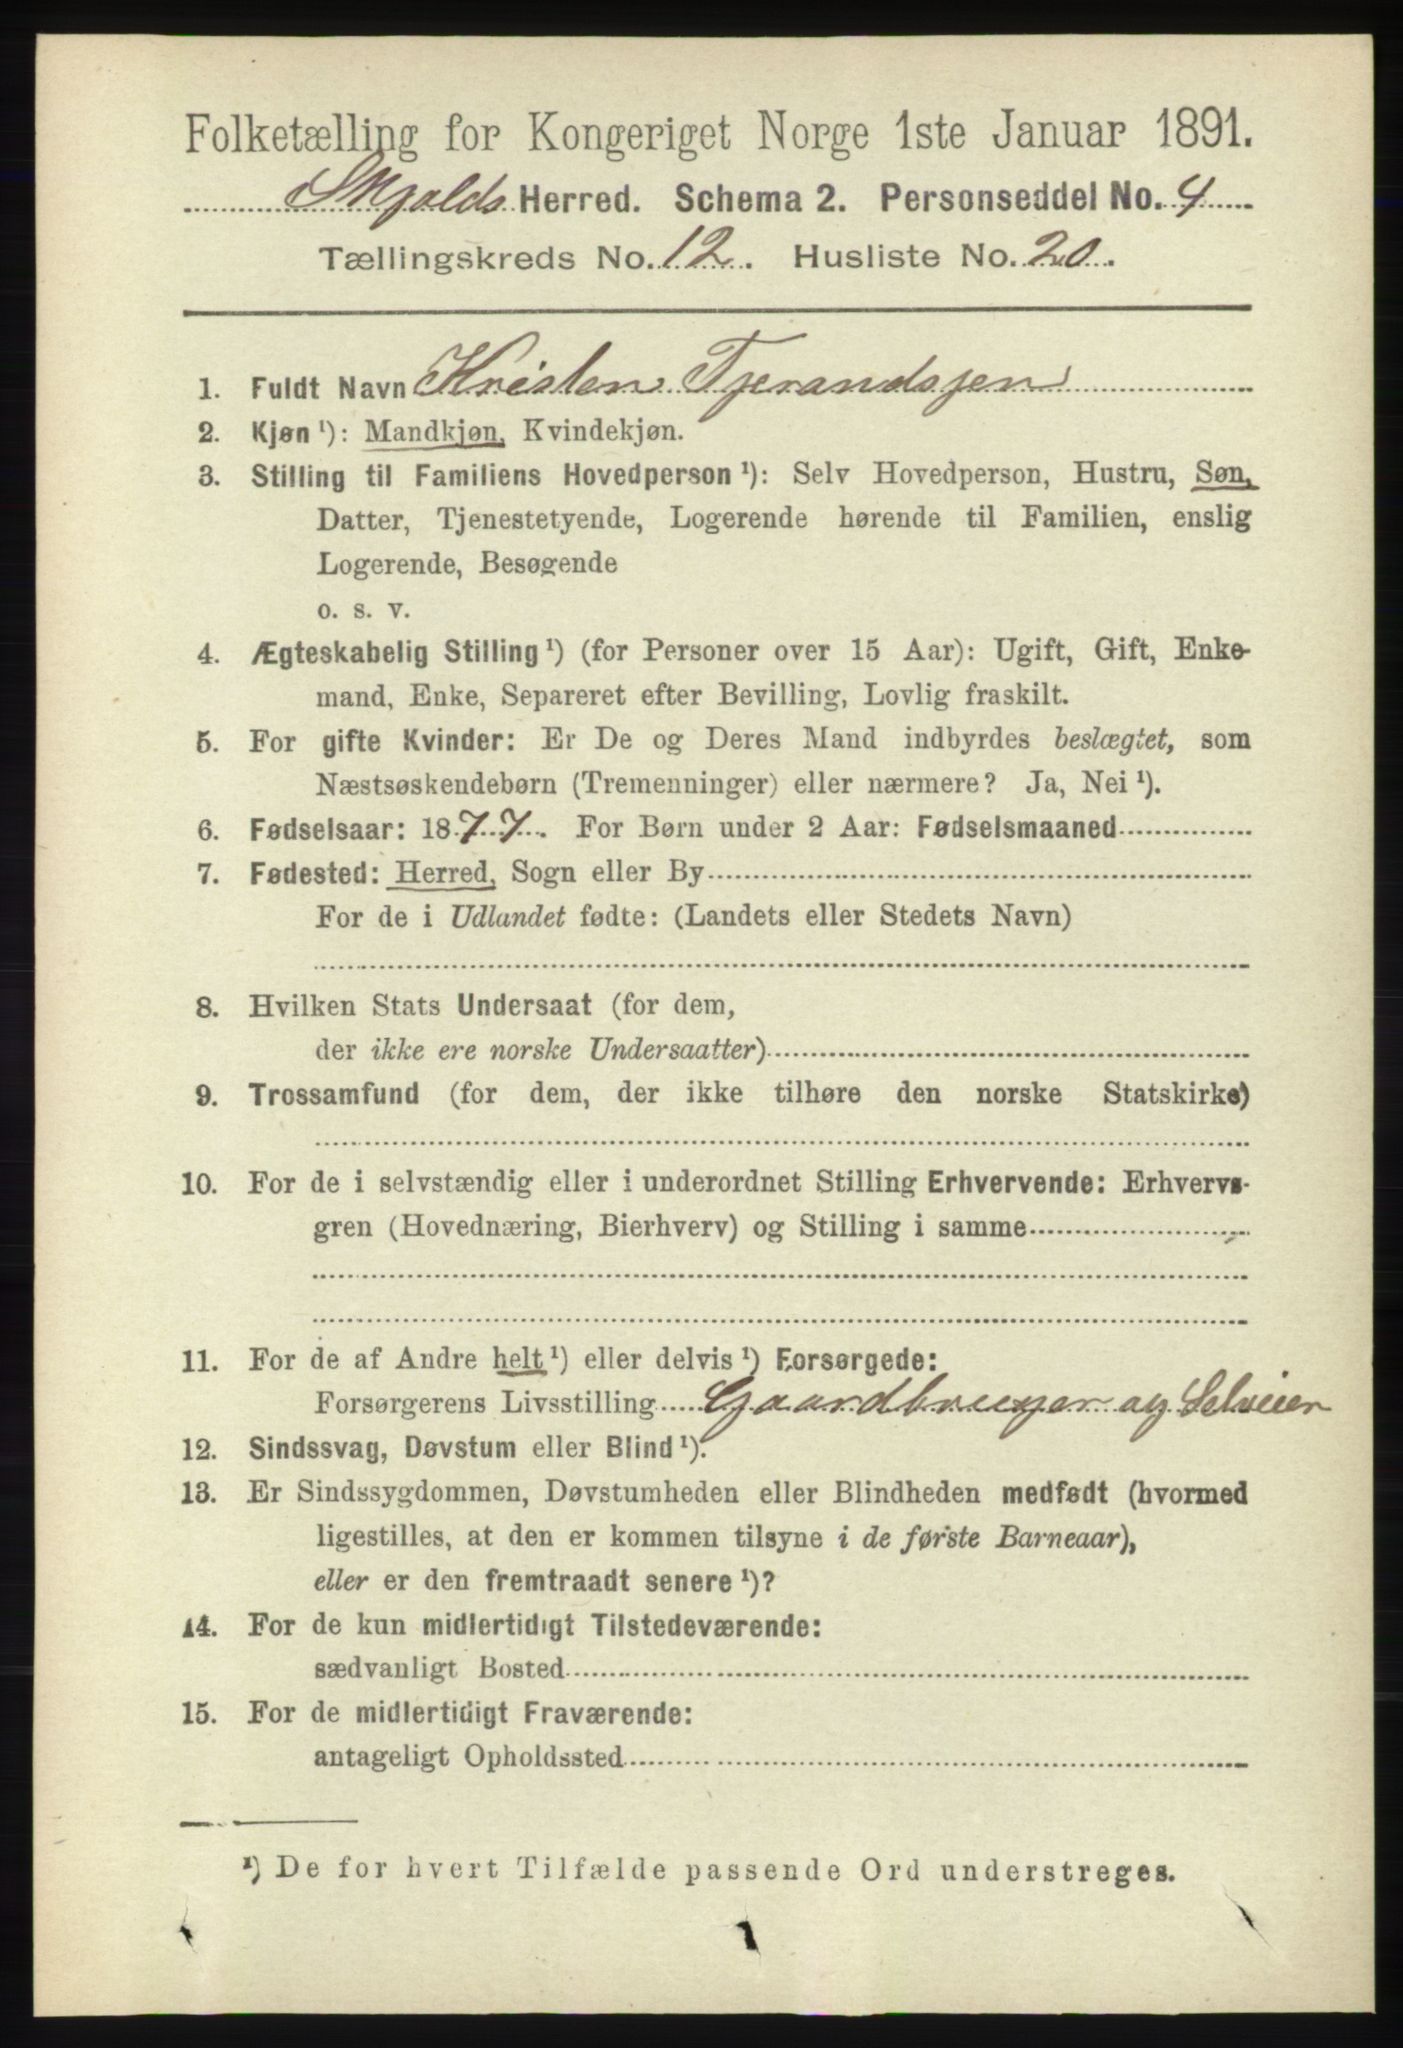 Folketælling for Kongeriget Norge 1ste Januar 1891.
Skjolds Herred. Schema 2. Personseddel No. 4
Tællingskreds No. 12. Husliste No. 20.
1. Fuldt Navn Kristen Tjerandsjen
2. Kjøn ¹): Mandkjøn, Kvindekjøn.
3. Stilling til Familiens Hovedperson ¹): Selv Hovedperson, Hustru, Søn,
Datter, Tjenestetyende, Logerende hørende til Familien, enslig
Logerende, Besøgende
o. s. v.
4. Ægteskabelig Stilling ¹) (for Personer over 15 Aar): Ugift, Gift, Enke-
mand, Enke, Separeret efter Bevilling, Lovlig fraskilt.
5. For gifte Kvinder: Er De og Deres Mand indbyrdes beslægtet, som
Næstsøskendebørn (Tremenninger) eller nærmere? Ja, Nei ¹).
6. Fødselsaar: 1877. For Børn under 2 Aar: Fødselsmaaned
7. Fødested: Herred, Sogn eller By
For de i Udlandet fødte: (Landets eller Stedets Navn)
8. Hvilken Stats Undersaat (for dem,
der ikke ere norske Undersaatter)
9. Trossamfund (for dem, der ikke tilhøre den norske Statskirke)
10. For de i selvstændig eller i underordnet Stilling Erhvervende: Erhvervs-
gren (Hovednæring, Bierhverv) og Stilling i samme
11. For de af Andre helt ¹) eller delvis ¹) Forsørgede:
Forsørgerens Livsstilling Gaardbruger og Selveier
12. Sindssvag, Døvstum eller Blind ¹).
13. Er Sindssygdommen, Døvstumheden eller Blindheden medfødt (hvormed
ligestilles, at den er kommen tilsyne i de første Barneaar),
eller er den fremtraadt senere ¹)?
14. For de kun midlertidigt Tilstedeværende:
sædvanligt Bosted
15. For de midlertidigt Fraværende:
antageligt Opholdssted
¹) De for hvert Tilfælde passende Ord understreges.